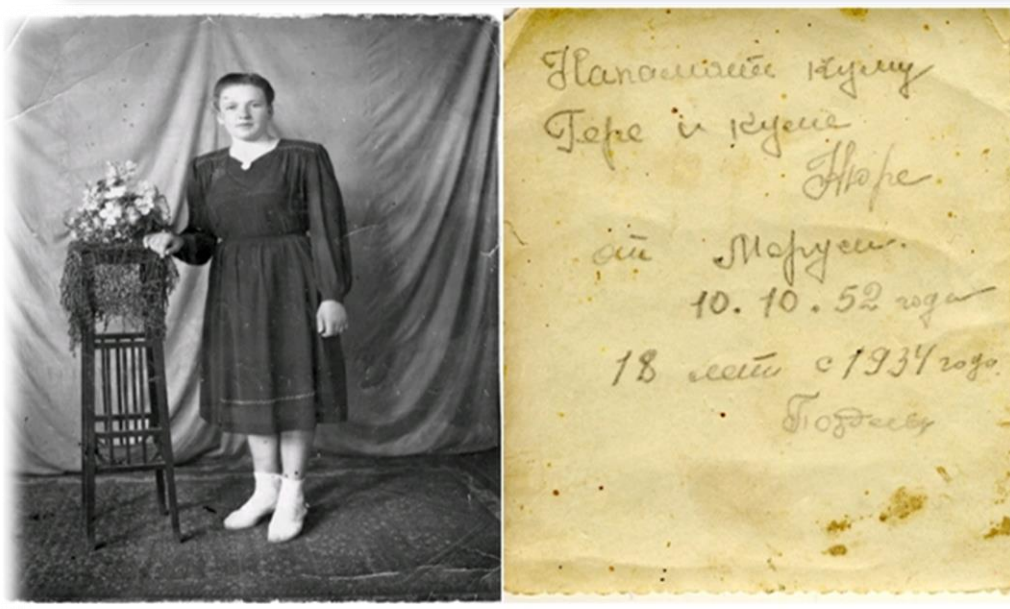 Напамять куму
Гере и куме
Нюре
от Маруси.
10.10.52 года
18 лет с 1934 года.